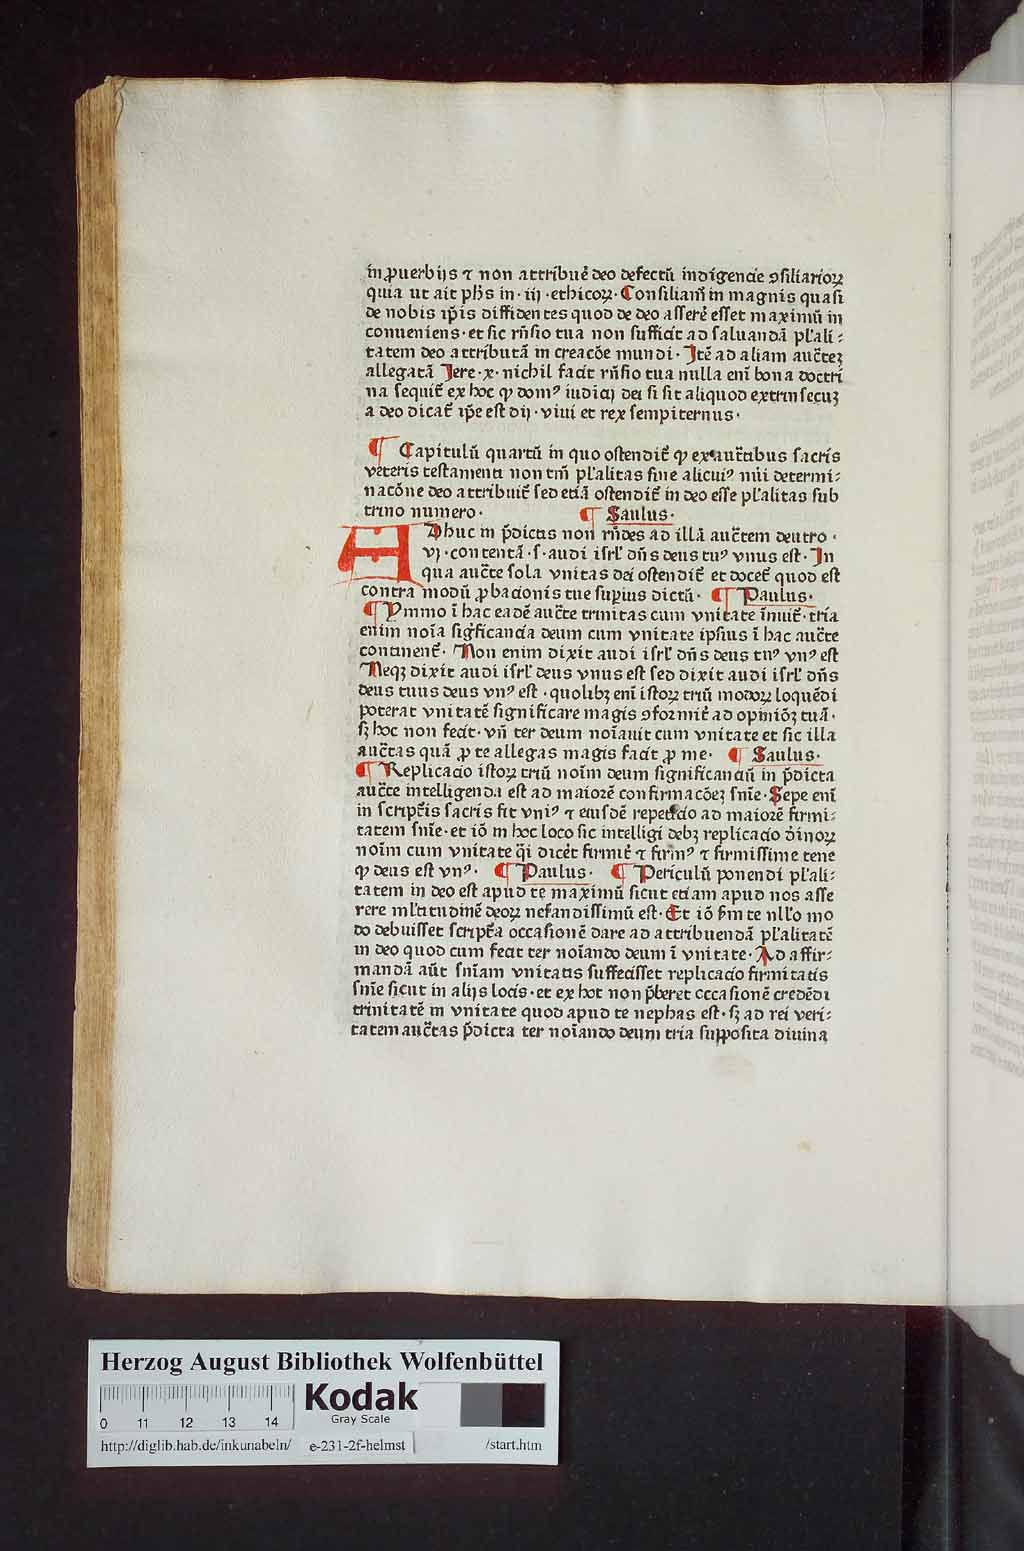 in ꝓuerbijs ⁊ non attribuẽ deo defectũ indigencie ꝯsiliarioꝝ
quia ut ait ph̃s in · iij · ethicoꝝ · Consiliam̃ in magnis quasi
de nobis ip̃is diffidentes quod de deo asserẽ esset maximũ in
conueniens · et sic rñsio tua non sufficit ad saluandã pl̃ali⸗
tatem deo attributã in creacõe mundi · Itẽ ad aliam auc̃teʒ
allegatã Jere · x · nichil facit rñsio tua nulla enĩ bona doctri
na sequit̃ ex hoc ꝙ dom⁹ iudicij dei si sit aliquod extrinsecuʒ
a deo dicat̃ ip̃e est dij · viui et rex sempiternus ·
¶ Capitulũ quartũ in quo ostendit̃ ꝙ ex auc̃tibus sacris
veteris testamenti non tm̃ pl̃alitas sine alicui⁹ nũi determi⸗
nacõne deo attribuit̃ sed etiã ostendit̃ in deo esse pl̃alitas sub
trino numero · ¶ Saulus ·
ADhuc in p̃dictis non rñdes ad illã auc̃tem deutro ·
vj · contentã · s · audi isrl̃ dñs deus tu⁹ vnus est · In
qua auc̃te sola vnitas dei ostendit̃ et docet̃ quod est
contra modũ ꝓbacionis tue supius dictũ · ¶ Paulus ·
¶ Ymmo ĩ hac eadẽ auc̃te trinitas cum vnitate ĩnuit̃ · tria
enim noĩa significancia deum cum vnitate ipsius ĩ hac auc̃te
continent̃ · Non enim dixit audi isrl̃ dñs deus tu⁹ vn⁹ est
Neqʒ dixit audi isrl̃ deus vnus est sed dixit audi isrl̃ dñs
deus tuus deus vn⁹ est · quolibʒ enĩ istoꝝ triũ modoꝝ loquẽdi
poterat vnitatẽ significare magis ꝯformit̃ ad opiniõʒ tuã ·
sʒ hoc non fecit · vñ ter deum noĩauit cum vnitate et sic illa
auc̃tas quã ꝓ te allegas magis facit ꝓ me · ¶ Saulus ·
¶ Replicacio istoꝝ triũ noĩm deum significanciũ in p̃dicta
auc̃te intelligenda est ad maiorẽ confirmacõeʒ snĩe · Sepe enĩ
in scripr̃is sacris fit vni⁹ ⁊ eiusdẽ repeticio ad maiorẽ firmi⸗
tatem snĩe · et iõ in hoc loco sic intelligi debʒ replicacio dĩnoꝝ
noĩm cum vnitate q̃i dicẽt firmit̃ ⁊ firm⁹ ⁊ firmissime tene
ꝙ deus est vn⁹ · ¶ Paulus · ¶ Periculũ ponendi pl̃ali⸗
tatem in deo est apud te maximũ sicut etiam apud nos asse
rere ml̃titudinẽ deoꝝ nefandissimũ est · Et iõ ẜm te nl̃lo mo
do debuisset scripr̃a occasionẽ dare ad attribuendã pl̃alitatẽ
in deo quod cum fecit ter noĩando deum ĩ vnitate · Ad affir⸗
mandã aũt snĩam vnitatis suffecisset replicacio firmitatis
snĩe sicut in alijs locis · et ex hoc non p̃beret occasionẽ credẽdi
trinitatẽ in vnitate quod apud te nephas est · sʒ ad rei veri⸗
tatem auc̃tas p̃dicta ter noĩando deum tria supposita diuina
Herzog August Bibliothek Wolfenbüttel
Kodak
Gray Scale
0 11 12 13 14
http://diglib.hab.de/inkunabeln/ e-231-2f-helmst /start.htm